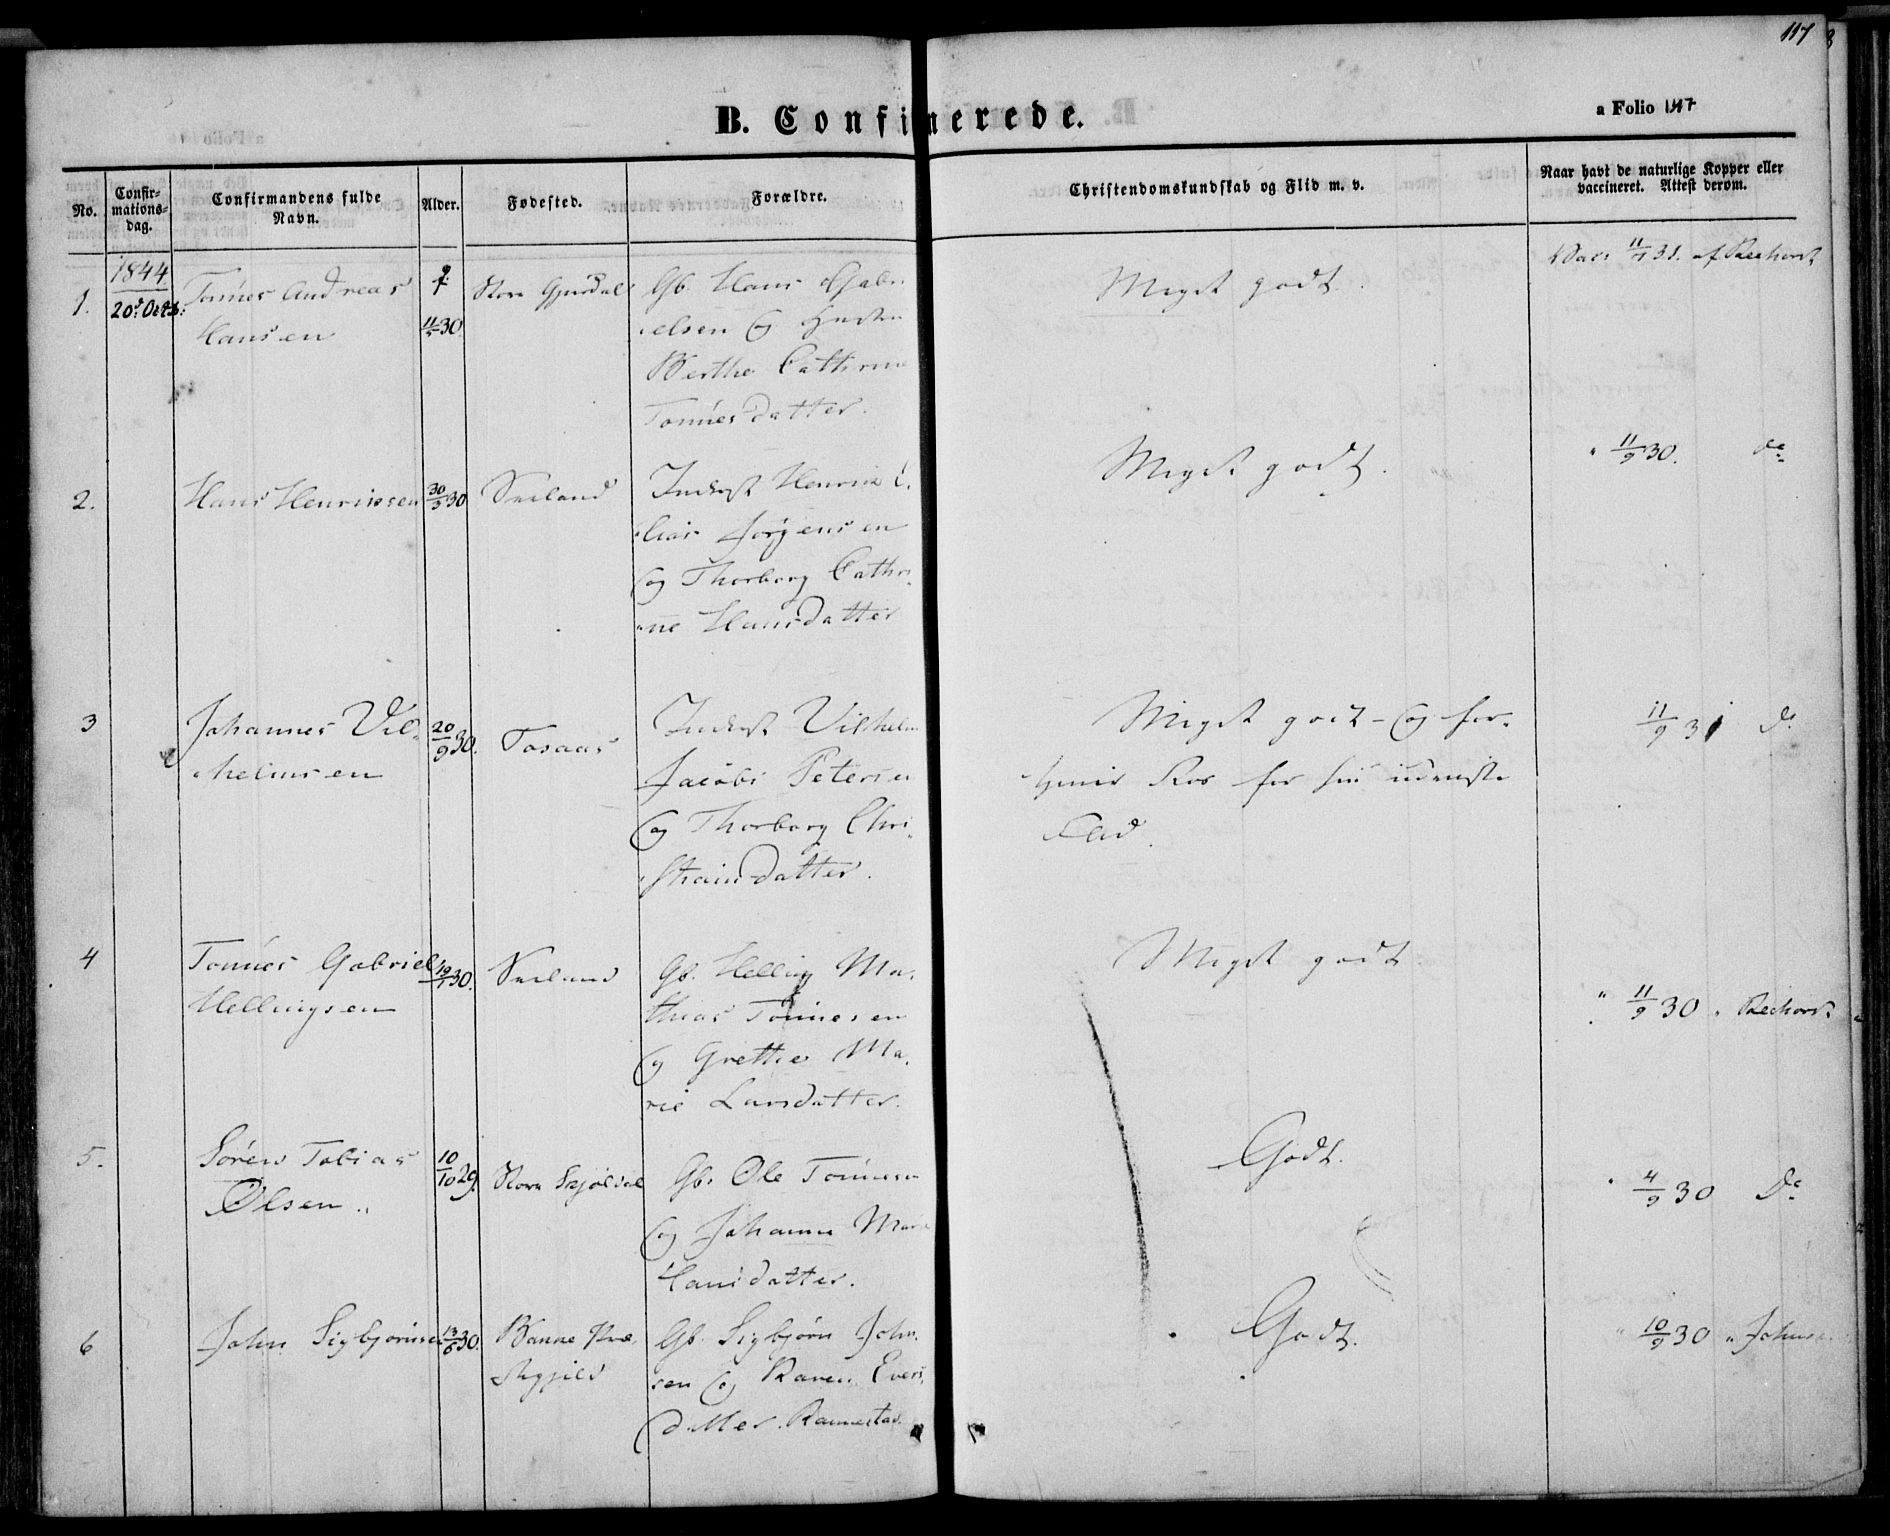 117
B. Confirmerede.
a Folio 147
No.
Confir-
mations-
dag.
Confirmandens fulde
Navn.
Alder.
Fødested.
Forældre.
Christendomskundskab og Flid m. v.
Naar havt de naturlige Kopper eller
vaccineret. Attest derom.
1844
1. 20d Octb:
Tønnes Andreas
Hansen
30
Store
Gb. Hans Gabri
elsen og Hustru
Berthe Cathrine
Tønnesdatter.
Meget godt.
Vac: 11/9 31. af Rechorst
2.
Hans Henriksen
30/3 30
Veiland
Inderst Henrik E
lias Jørgensen
og Thorborg Cathri
ne Hansdatter
Meget godt.
" 11/9 30. do
3
Johannes Vil
helmsen
20/9 30.
Tosaas
Inderst Vilhelm
Jacobi Petersen
og Thorborg Chri
stiansdatter.
Meget godt - og for
tjener Ros for sin udmerkte
Flid.
11/9 31 Do
4
Tønnes Gabriel
Hellingsen
30.
Veiland
Gb. Helling Ma
thias Tønnesen
og Grethe Ma
rie Larsdatter.
Meget godt
" 11/9 30 " Rechorst
5.
Søren Tobias
Olsen "
10/10 29.
Store
Gb. Ole Tønnesen
og Johanne Marie
Hansdatter.
Godt.
" 4/9 30 Do
6
John Sigbjørnsen
13/6 30.
Gb. Sigbjørn John
sen og Karen Evers
datter. Rannestad
Godt.
" 10/9 30 " Johnsen